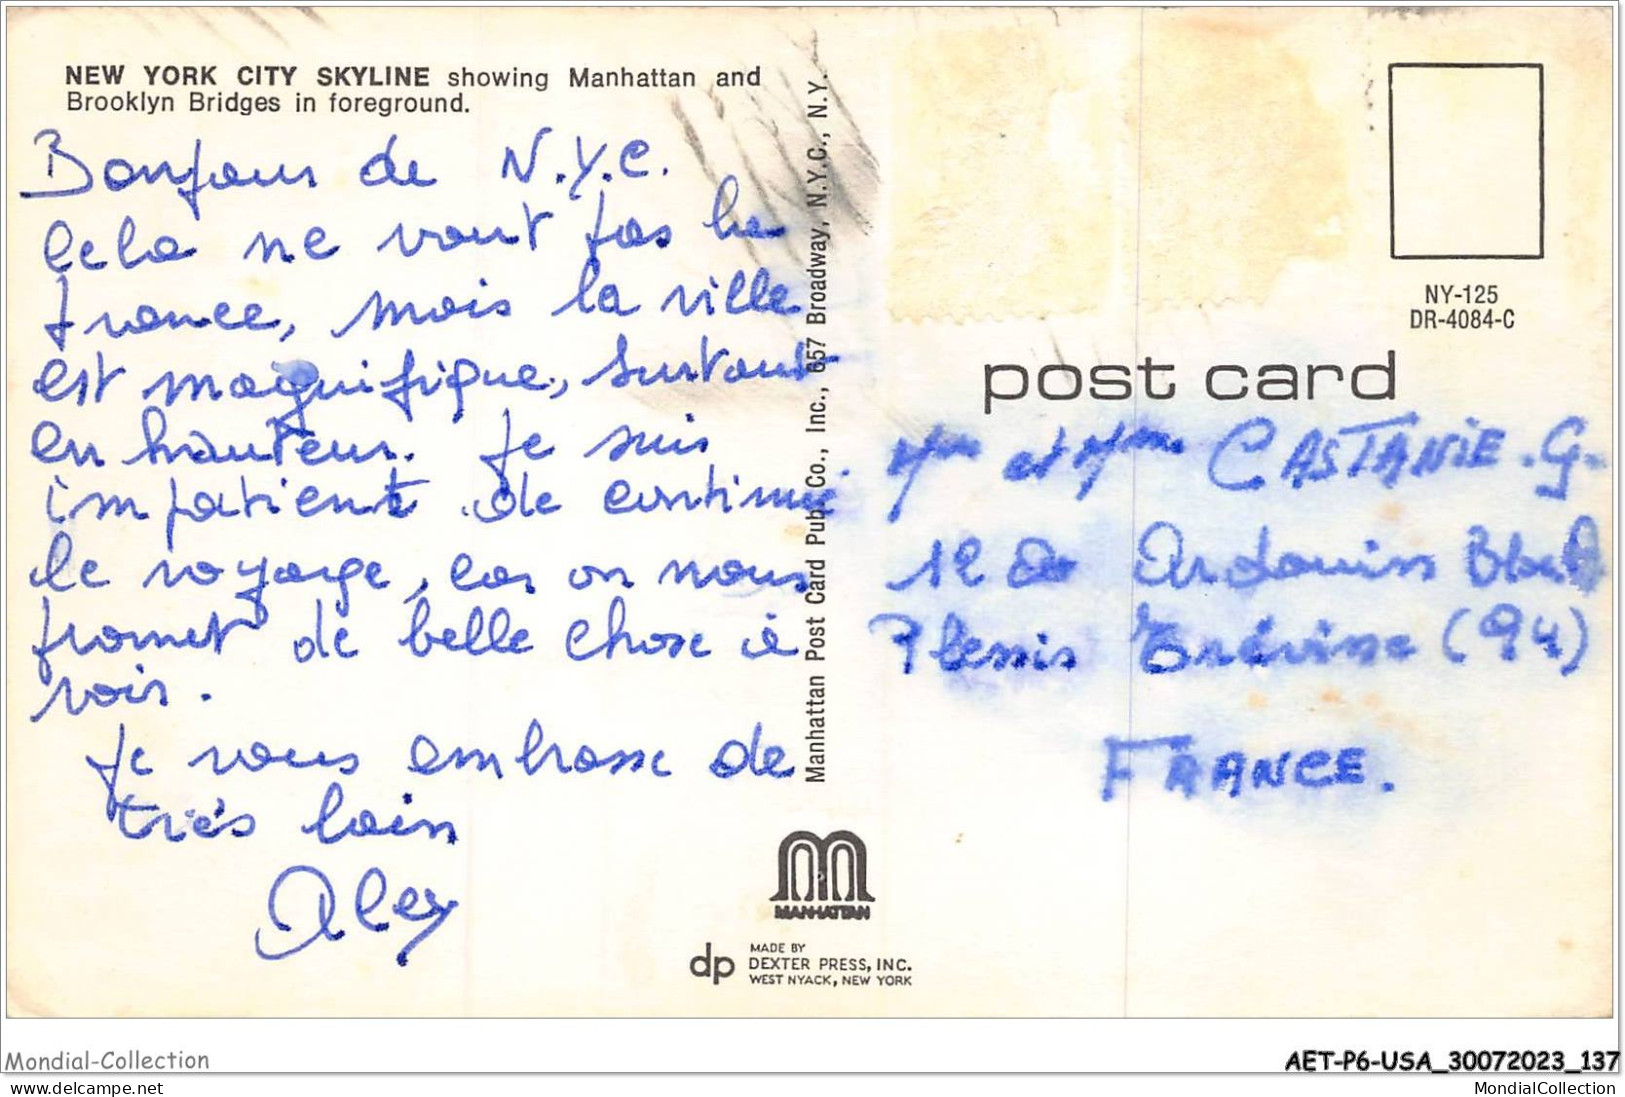 NEW YORK CITY SKYLINE showing Manhattan and
Brooklyn Bridges in foreground.
Bonjour de N.Y.C.
Cela ne vaut pas la
france, mais la ville
est magnifique, surtout
en hauteur. Je suis
impatient de continué
le voyage, car on nous
promet de belle chose à
voir.
Je vous embrasse de
très loin
Alex
Manhattan Post Card Pub. Co., Inc., 657 Broadway, N.Y.C., N.Y.
MANHATTAN
dp MADE BY
DEXTER PRESS, INC.
WEST NYACK, NEW YORK
NY-125
DR-4084-C
post card
et CASTANIE . G.
12 Ardouin
Plessis Trévise (94)
FRANCE.
Mondial-Collection
AET-P6-USA_30072023_137
MondialCollection